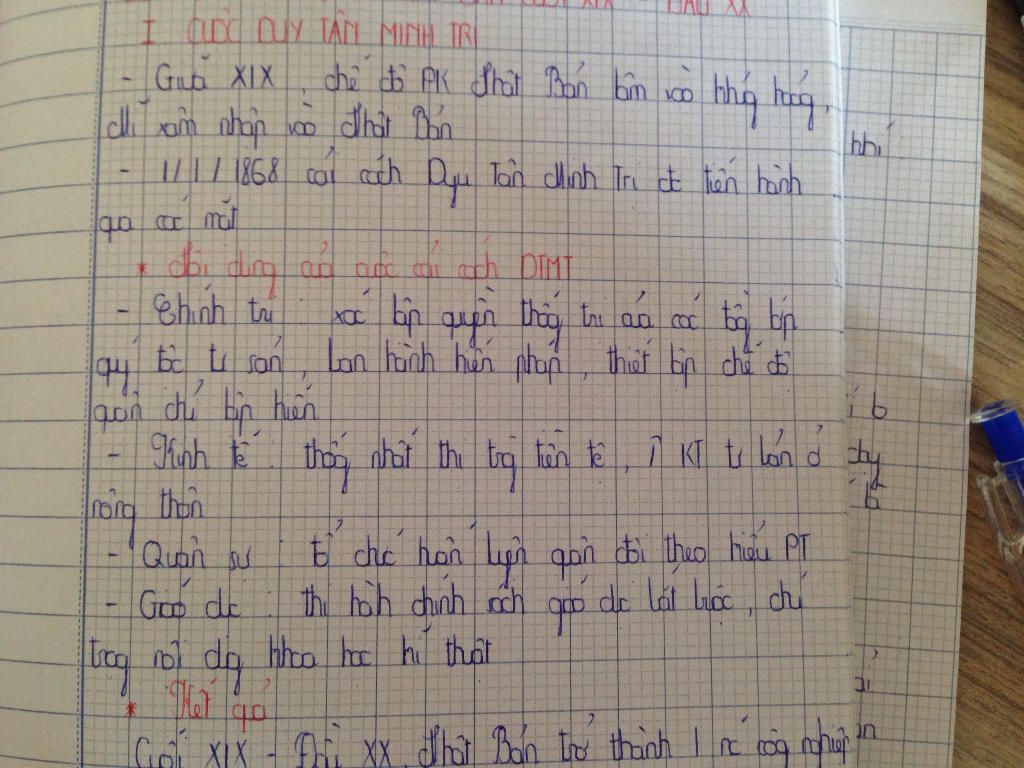 CUỐI XIX - ĐẦU XX
I CUỘC DUY TÂN MINH TRỊ
- Giữa XIX, chế độ PK Nhật Bản lâm vào khủg hoảg,
xâm nhập vào Nhật Bản
- 1/1/1868 cải cách Duy Tân Minh Trị đc tiến hành
qa các mặt
* Nội dung của cuộc cải cách DTMT
- Chính trị: xác lập quyền thốg trị của các tầg lớp
quý tộc tư sản, ban hành hiến pháp, thiết lập chế độ
quân chủ lập hiến
- Kinh tế: thốg nhất thị trg tiền tệ, ↑ KT tư bản ở
nông thôn
- Quân sự: tổ chức huấn luyện quân đội theo kiểu PT
- Giáo dc: thi hành chính sách giáo dc bắt buộc, chú
trọg nội dg khoa học kĩ thuật
* Kết qả
Cuối XIX - Đầu XX, Nhật Bản trở thành 1 nc côg nghiệp